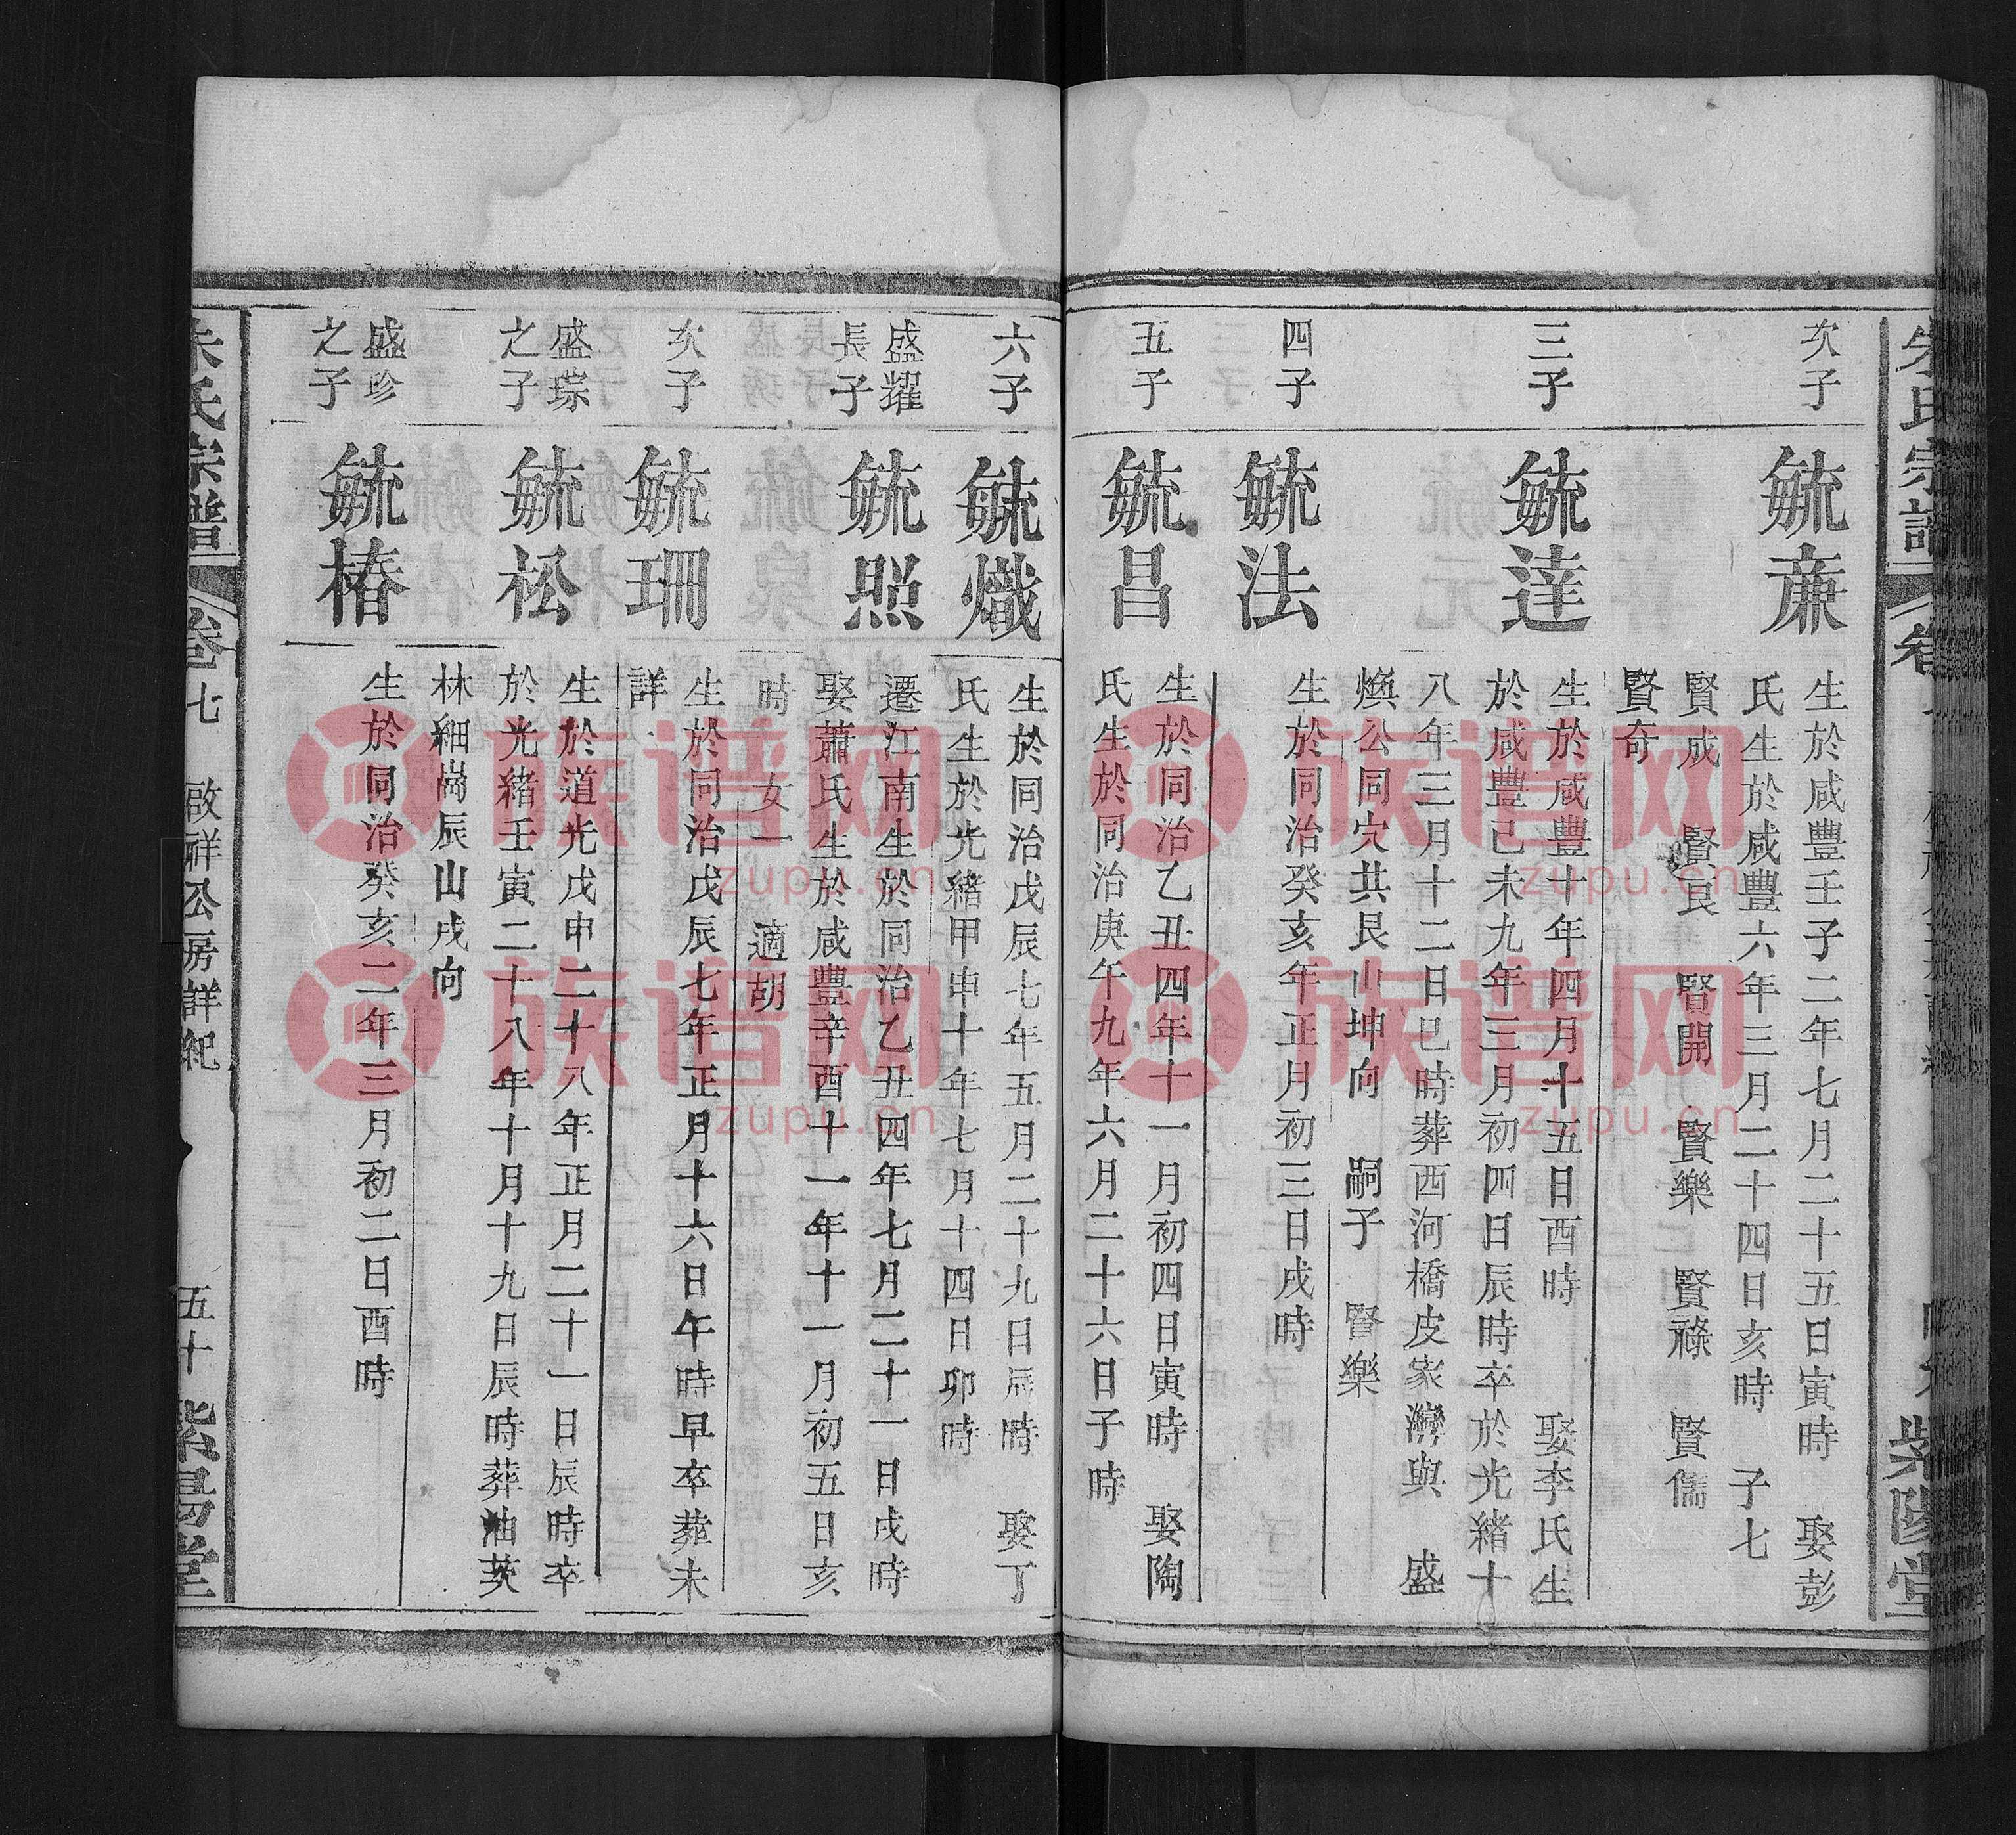 朱氏宗譜
次子
毓亷
生於咸豐壬子二年七月二十五日寅時 娶彭
氏生於咸豐六年三月二十四日亥時 子七
賢成 賢良 賢開 賢樂 賢祿 賢儒
賢奇
三子
毓達
生於咸豐十年四月十五日酉時 娶李氏生
於咸豐己未九年三月初四日辰時卒於光緒十
八年三月十二日巳時葬西河橋皮家灣與 盛
煥公同穴共艮山坤向 嗣子 賢樂
四子
毓法
生於同治癸亥年正月初三日戌時
五子
毓昌
生於同治乙丑四年十一月初四日寅時 娶陶
氏生於同治庚午九年六月二十六日子時
紫陽堂
六子
毓熾
生於同治戊辰七年五月二十九日辰時 娶丁
氏生於光緒甲申十年七月十四日卯時
盛耀
長子
毓照
遷江南生於同治乙丑四年七月二十一日戌時
娶蕭氏生於咸豐辛酉十一年十一月初五日亥
時 女一 適胡
次子
毓珊
生於同治戊辰七年正月十六日午時早卒葬未
詳
盛琮
之子
毓松
生於道光戊申二十八年正月二十一日辰時卒
於光緒壬寅二十八年十月十九日辰時葬油茨
林細崗辰山戌向
盛珍
之子
毓椿
生於同治癸亥二年三月初二日酉時
朱氏宗譜 卷七 啟祥公房詳紀 五十 紫陽堂
族谱网
zupu.cn
族谱网
zupu.cn
族谱网
zupu.cn
族谱网
zupu.cn